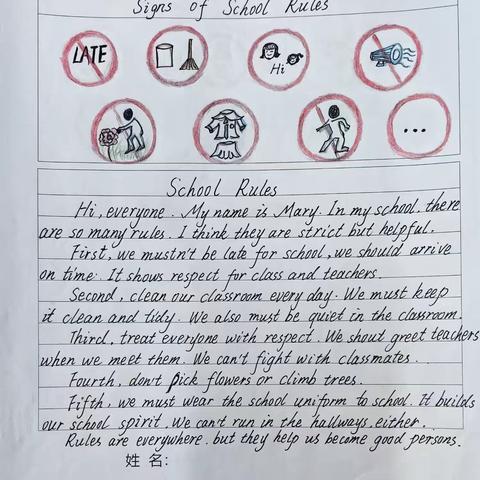 Signs of School Rules
LATE
Hi
...
School Rules
Hi, everyone. My name is Mary. In my school, there
are so many rules. I think they are strict but helpful.
First, we mustn't be late for school, we should arrive
on time. It shows respect for class and teachers.
Second, clean our classroom every day. We must keep
it clean and tidy. We also must be quiet in the classroom.
Third, treat everyone with respect. We shout greet teachers
when we meet them. We can't fight with classmates.
Fourth, don't pick flowers or climb trees.
Fifth, we must wear the school uniform to school. It builds
our school spirit. We can't run in the hallways either.
Rules are everywhere. but they help us become good persons.
姓 名: